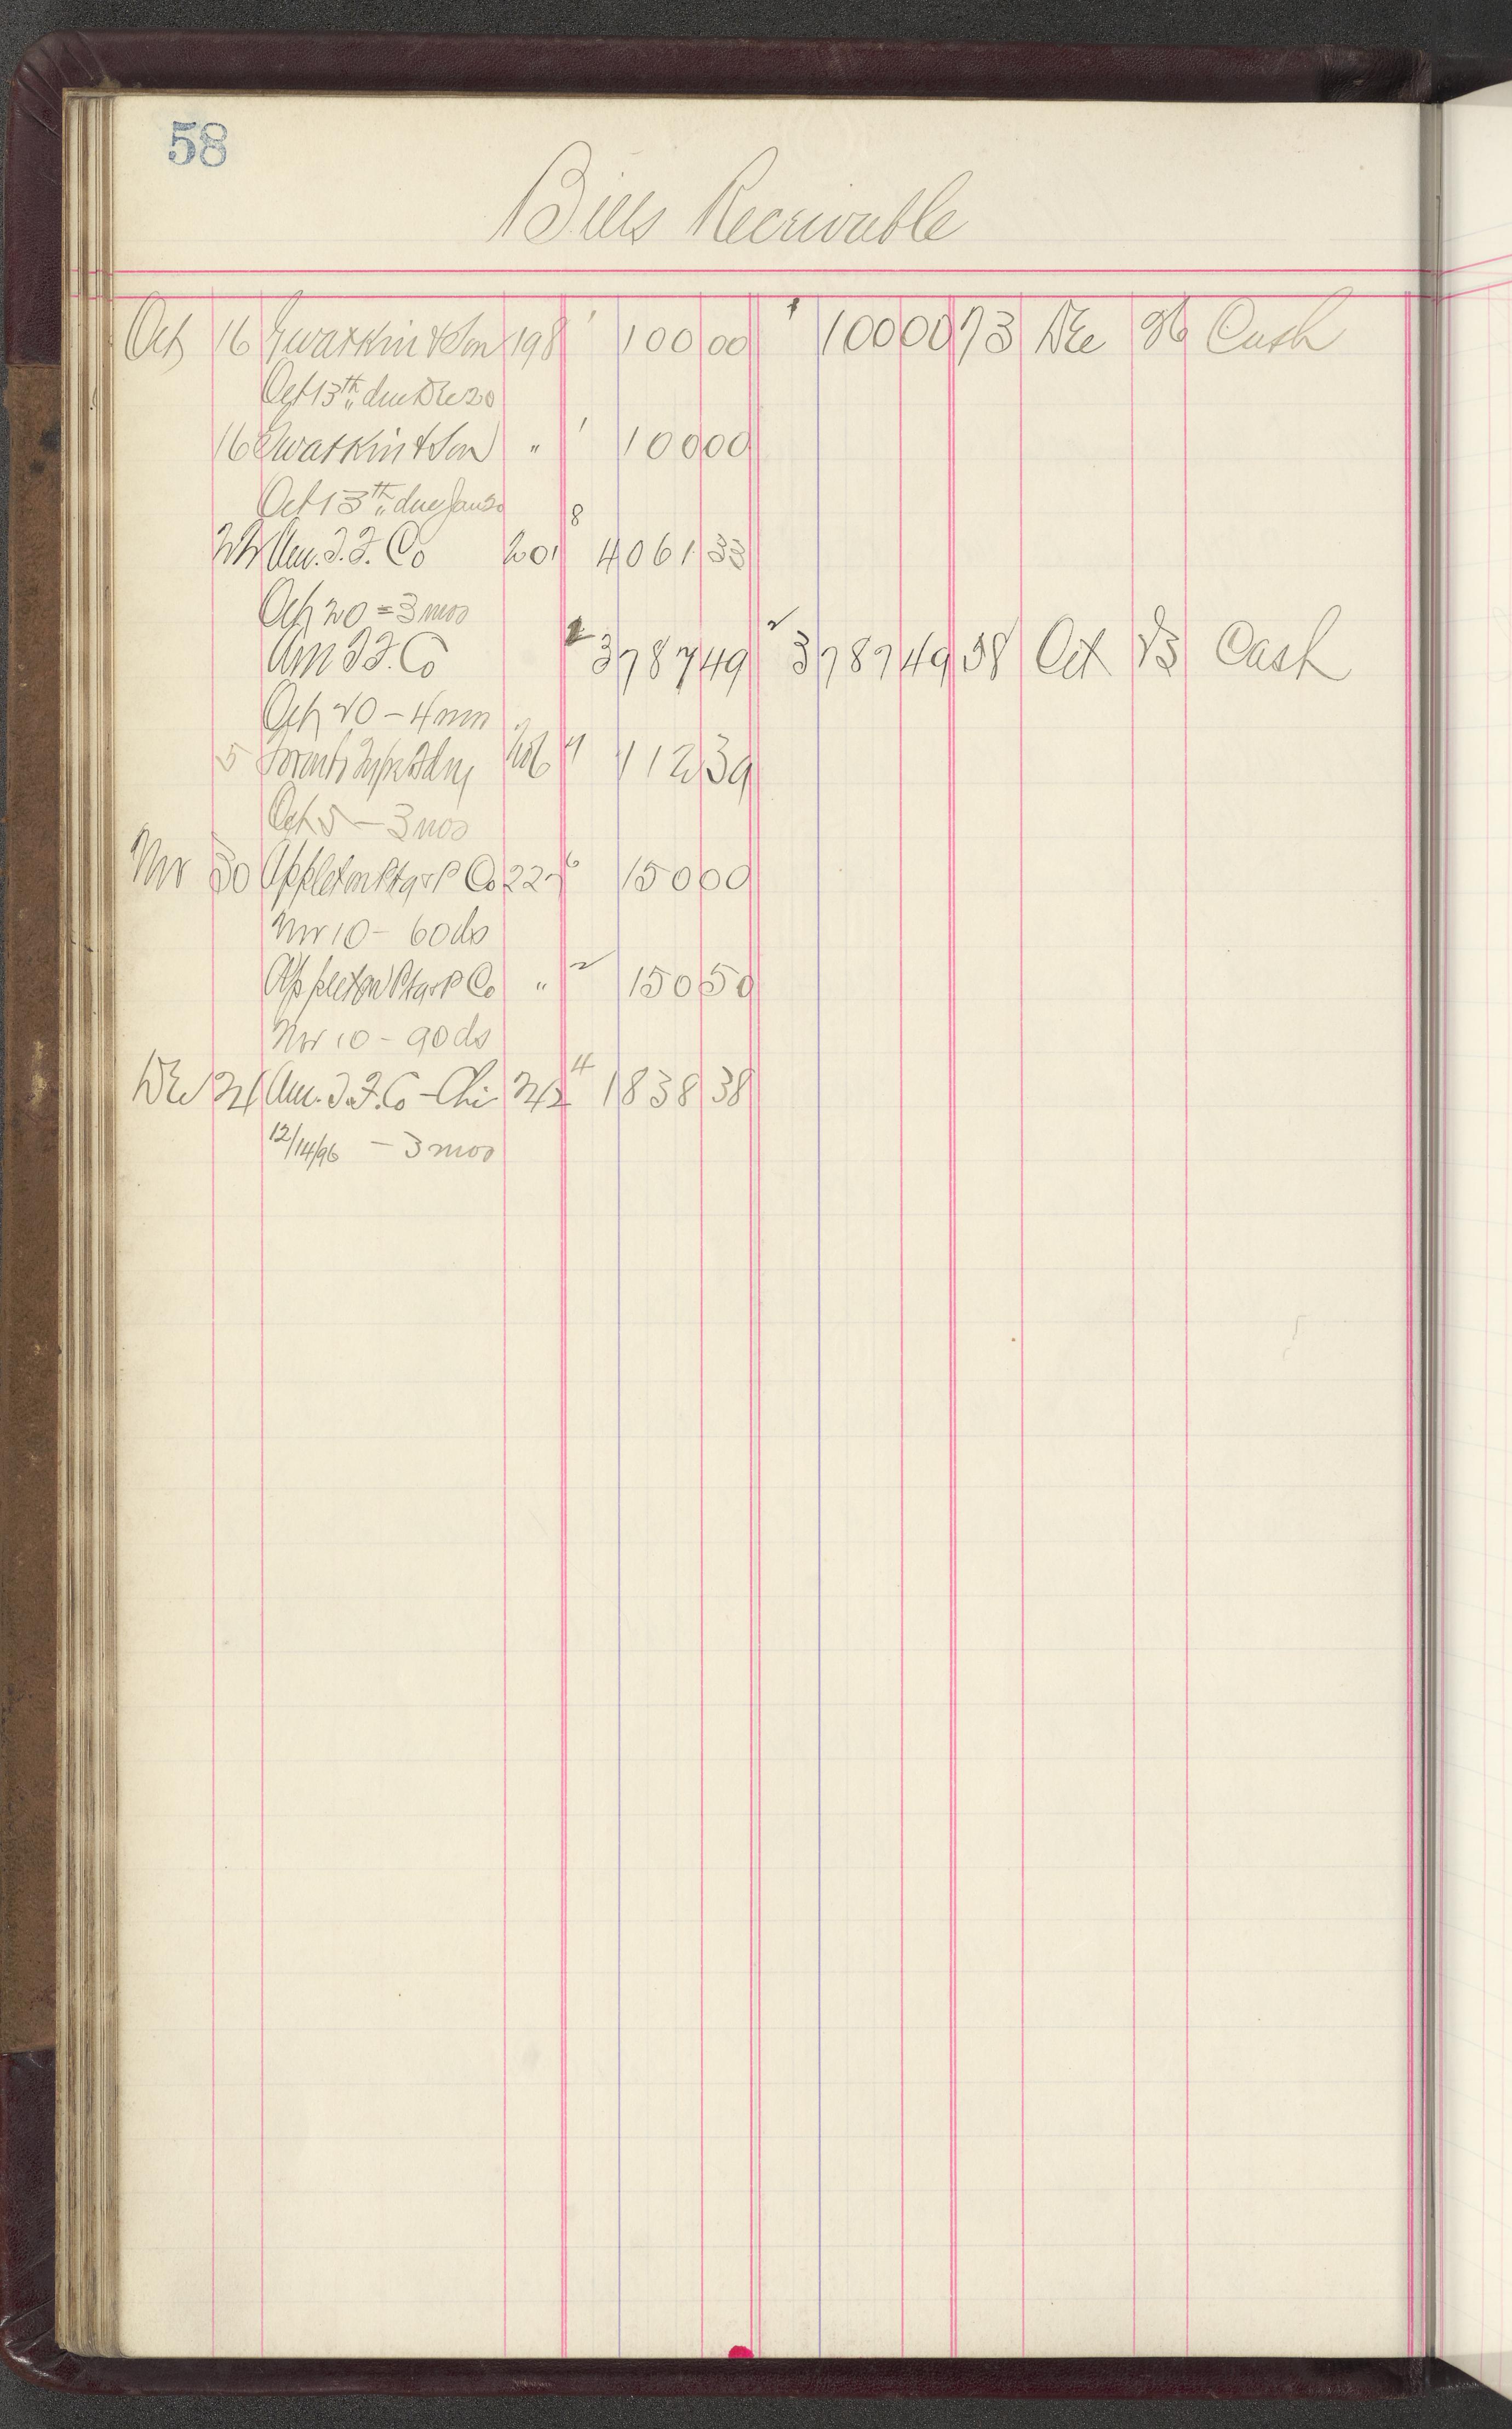 58
Bills Receivable
Oct 16 & Son 198 1 100 00 1 100 00 73 Dec 26 Cash
Oct 13th " due Dec 20
16 & Son " 1 100 00
Oct 13th " due Jan 20
22 Am. T. F. Co 201 8 4061 33
Oct 20 = 3 mos
Am T F. Co 2 3787 49 2 3787 49 58 Oct 23 Cash
Oct 20 - 4 mos
5 Toronto Type Fdry 206 7 112 39
Oct 5 - 3 mos
Nov 30 Appleton Co 227 6 150 00
Nov 10 - 60 ds
Appleton Co " 2 150 50
Nov 10 - 90 ds
Dec 24 Am. T. F. Co - Chi 242 4 1838 38
12/14/96 - 3 mos